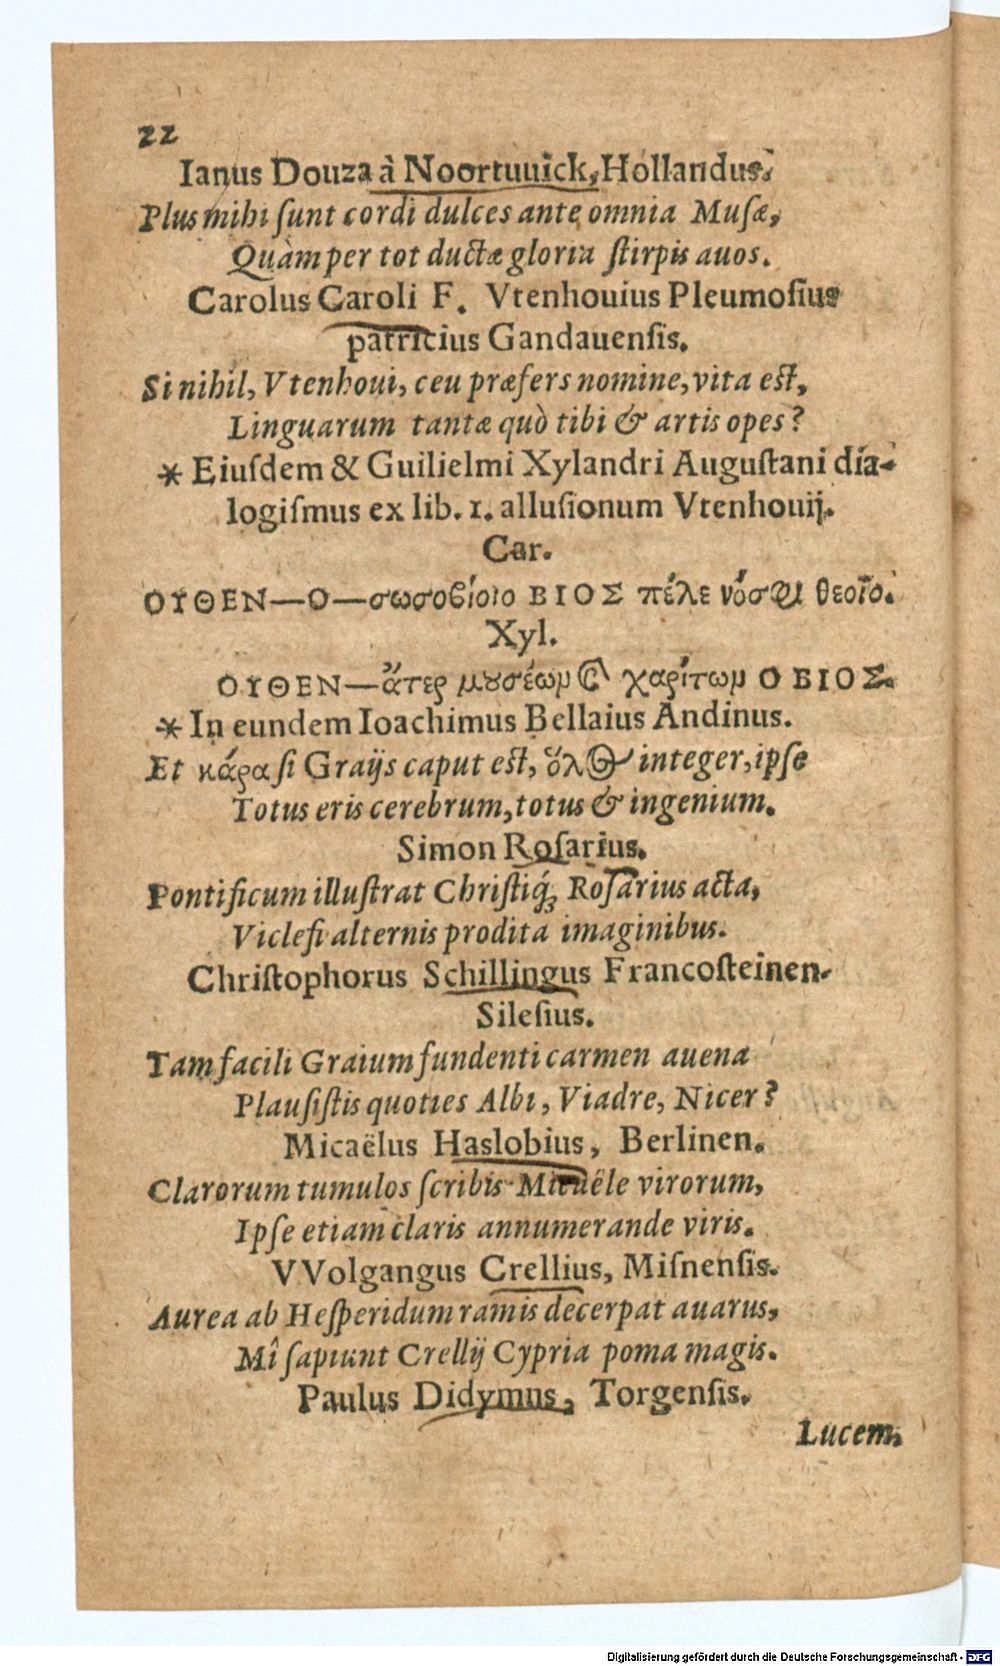 22
Ianus Douza à Noortuuick, Hollandus.
Plus mihi ſunt cordi dulces ante omnia Muſæ,
Quàm per tot ductæ gloria ſtirpis auos.
Carolus Caroli F. Vtenhouius Pleumoſius
patricius Gandauenſis.
Si nihil, Vtenhoui, ceu præfers nomine, vita eſt,
Linguarum tantæ quò tibi & artis opes?
* Eiuſdem & Guilielmi Xylandri Auguſtani dia-
logiſmus ex lib. 1. alluſionum Vtenhouij.
Car.
ΟΥΘΕΝ—Ο—σωσοβίοιο ΒΙΟΣ πέλε νόσφι θεοῖο.
Xyl.
ΟΥΘΕΝ—ἄτερ μουσέων καὶ χαρίτων Ο ΒΙΟΣ.
* In eundem Ioachimus Bellaius Andinus.
Et κάρα ſi Graijs caput eſt, ὅλος integer, ipſe
Totus eris cerebrum, totus & ingenium.
Simon Roſarius.
Pontificum illuſtrat Chriſtiq́ꝫ Roſarius acta,
Vicleſi alternis prodita imaginibus.
Chriſtophorus Schillingus Francoſteinen-
Sileſius.
Tam facili Graium fundenti carmen auena
Plauſiſtis quoties Albi, Viadre, Nicer?
Micaëlus Haslobius, Berlinen.
Clarorum tumulos ſcribis Micaële virorum,
Ipſe etiam claris annumerande viris.
VVolgangus Crellius, Miſnenſis.
Aurea ab Heſperidum ramis decerpat auarus,
Mî ſapiunt Crellij Cypria poma magis.
Paulus Didymus, Torgenſis.
Lucem.
Digitalisierung gefördert durch die Deutsche Forschungsgemeinschaft - DFG